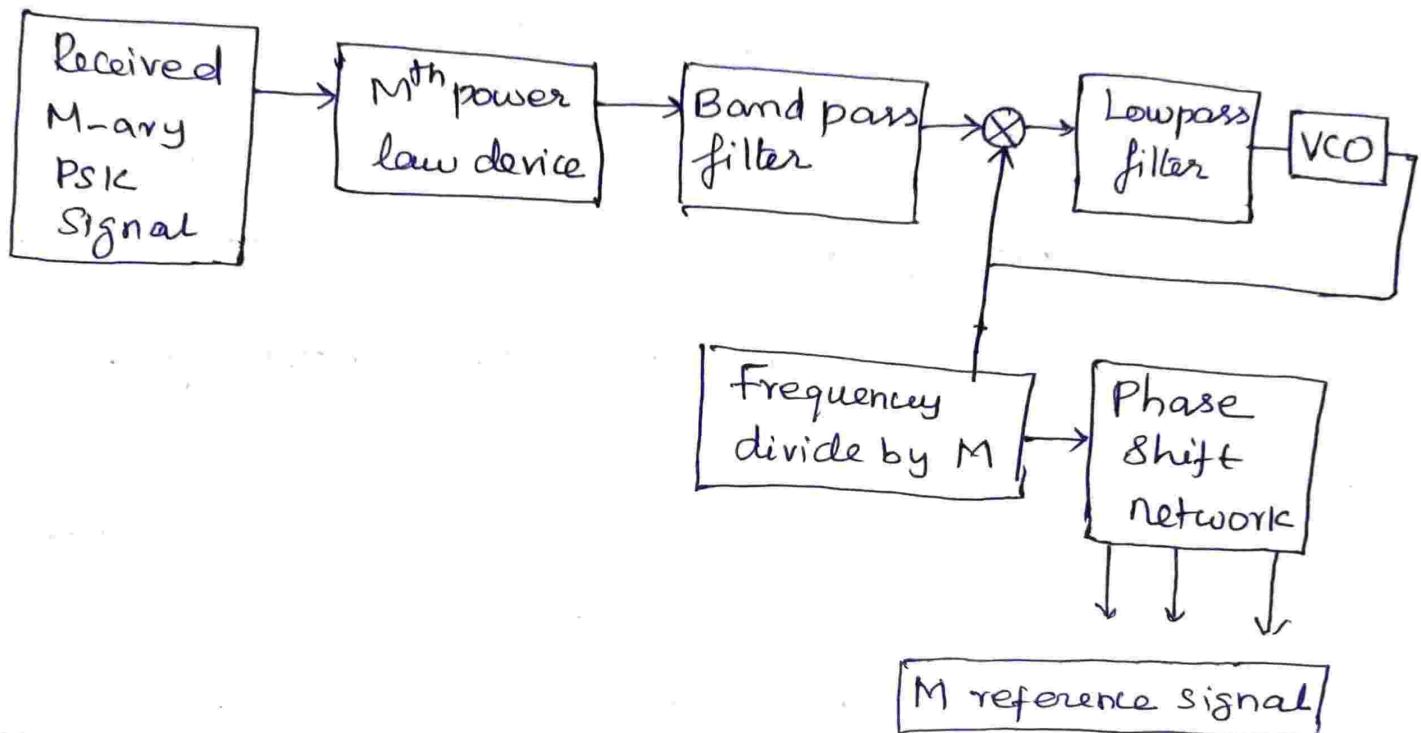 Received
M-ary
PSK
Signal
Mth power
law device
Band pass
filter
Lowpass
filter
VCO
Frequency
divide by M
Phase
Shift
network
M reference signal